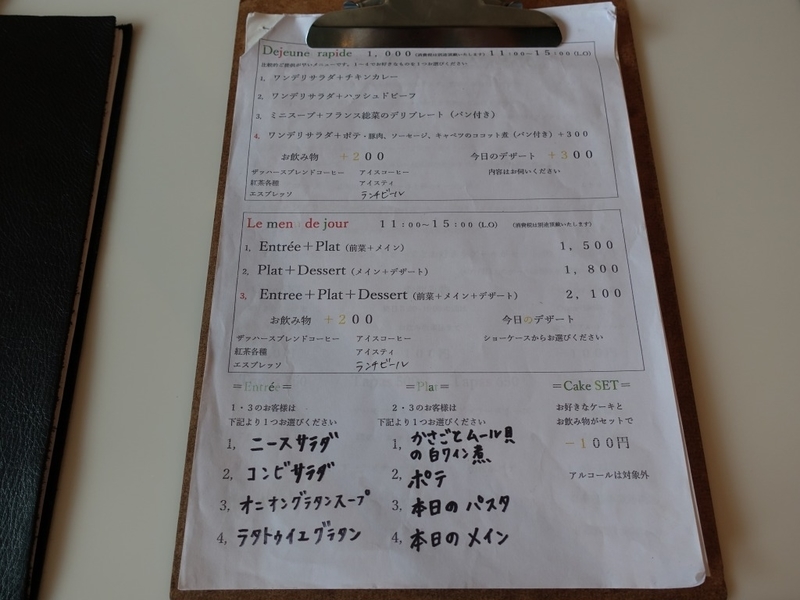 Dejeune rapide 1,000 (消費税は別途頂戴いたします) 11:00~15:00 (L.O)
比較的ご提供が早いメニューです。1~4でお好きなものを1つお選びください
1, ワンデリサラダ+チキンカレー
2, ワンデリサラダ+ハッシュドビーフ
3, ミニスープ+フランス総菜のデリプレート (パン付き)
4, ワンデリサラダ+ポテ・豚肉、ソーセージ、キャベツのココット煮 (パン付き) +300
お飲み物 +200 今日のデザート +300
ザッハーズブレンドコーヒー アイスコーヒー 内容はお伺いください
紅茶各種 アイスティ
エスプレッソ ランチビール
Le men de jour 11:00~15:00 (L.O) (消費税は別途頂戴いたします)
1, Entrée+Plat (前菜+メイン) 1,500
2, Plat+Dessert (メイン+デザート) 1,800
3, Entree+Plat+Dessert (前菜+メイン+デザート) 2,100
お飲み物 +200 今日のデザート
ザッハーズブレンドコーヒー アイスコーヒー ショーケースからお選びください
紅茶各種 アイスティ
エスプレッソ ランチビール
=Entrée=
1・3のお客様は
下記より1つお選びください
1, ニースサラダ
2, コンビサラダ
3, オニオングラタンスープ
4, ラタトゥイユグラタン
=Plat=
2・3のお客様は
下記より1つお選びください
1, かさごとムール貝
の白ワイン煮
2, ポテ
3, 本日のパスタ
4, 本日のメイン
=Cake SET=
お好きなケーキと
お飲み物がセットで
-100円
アルコールは対象外